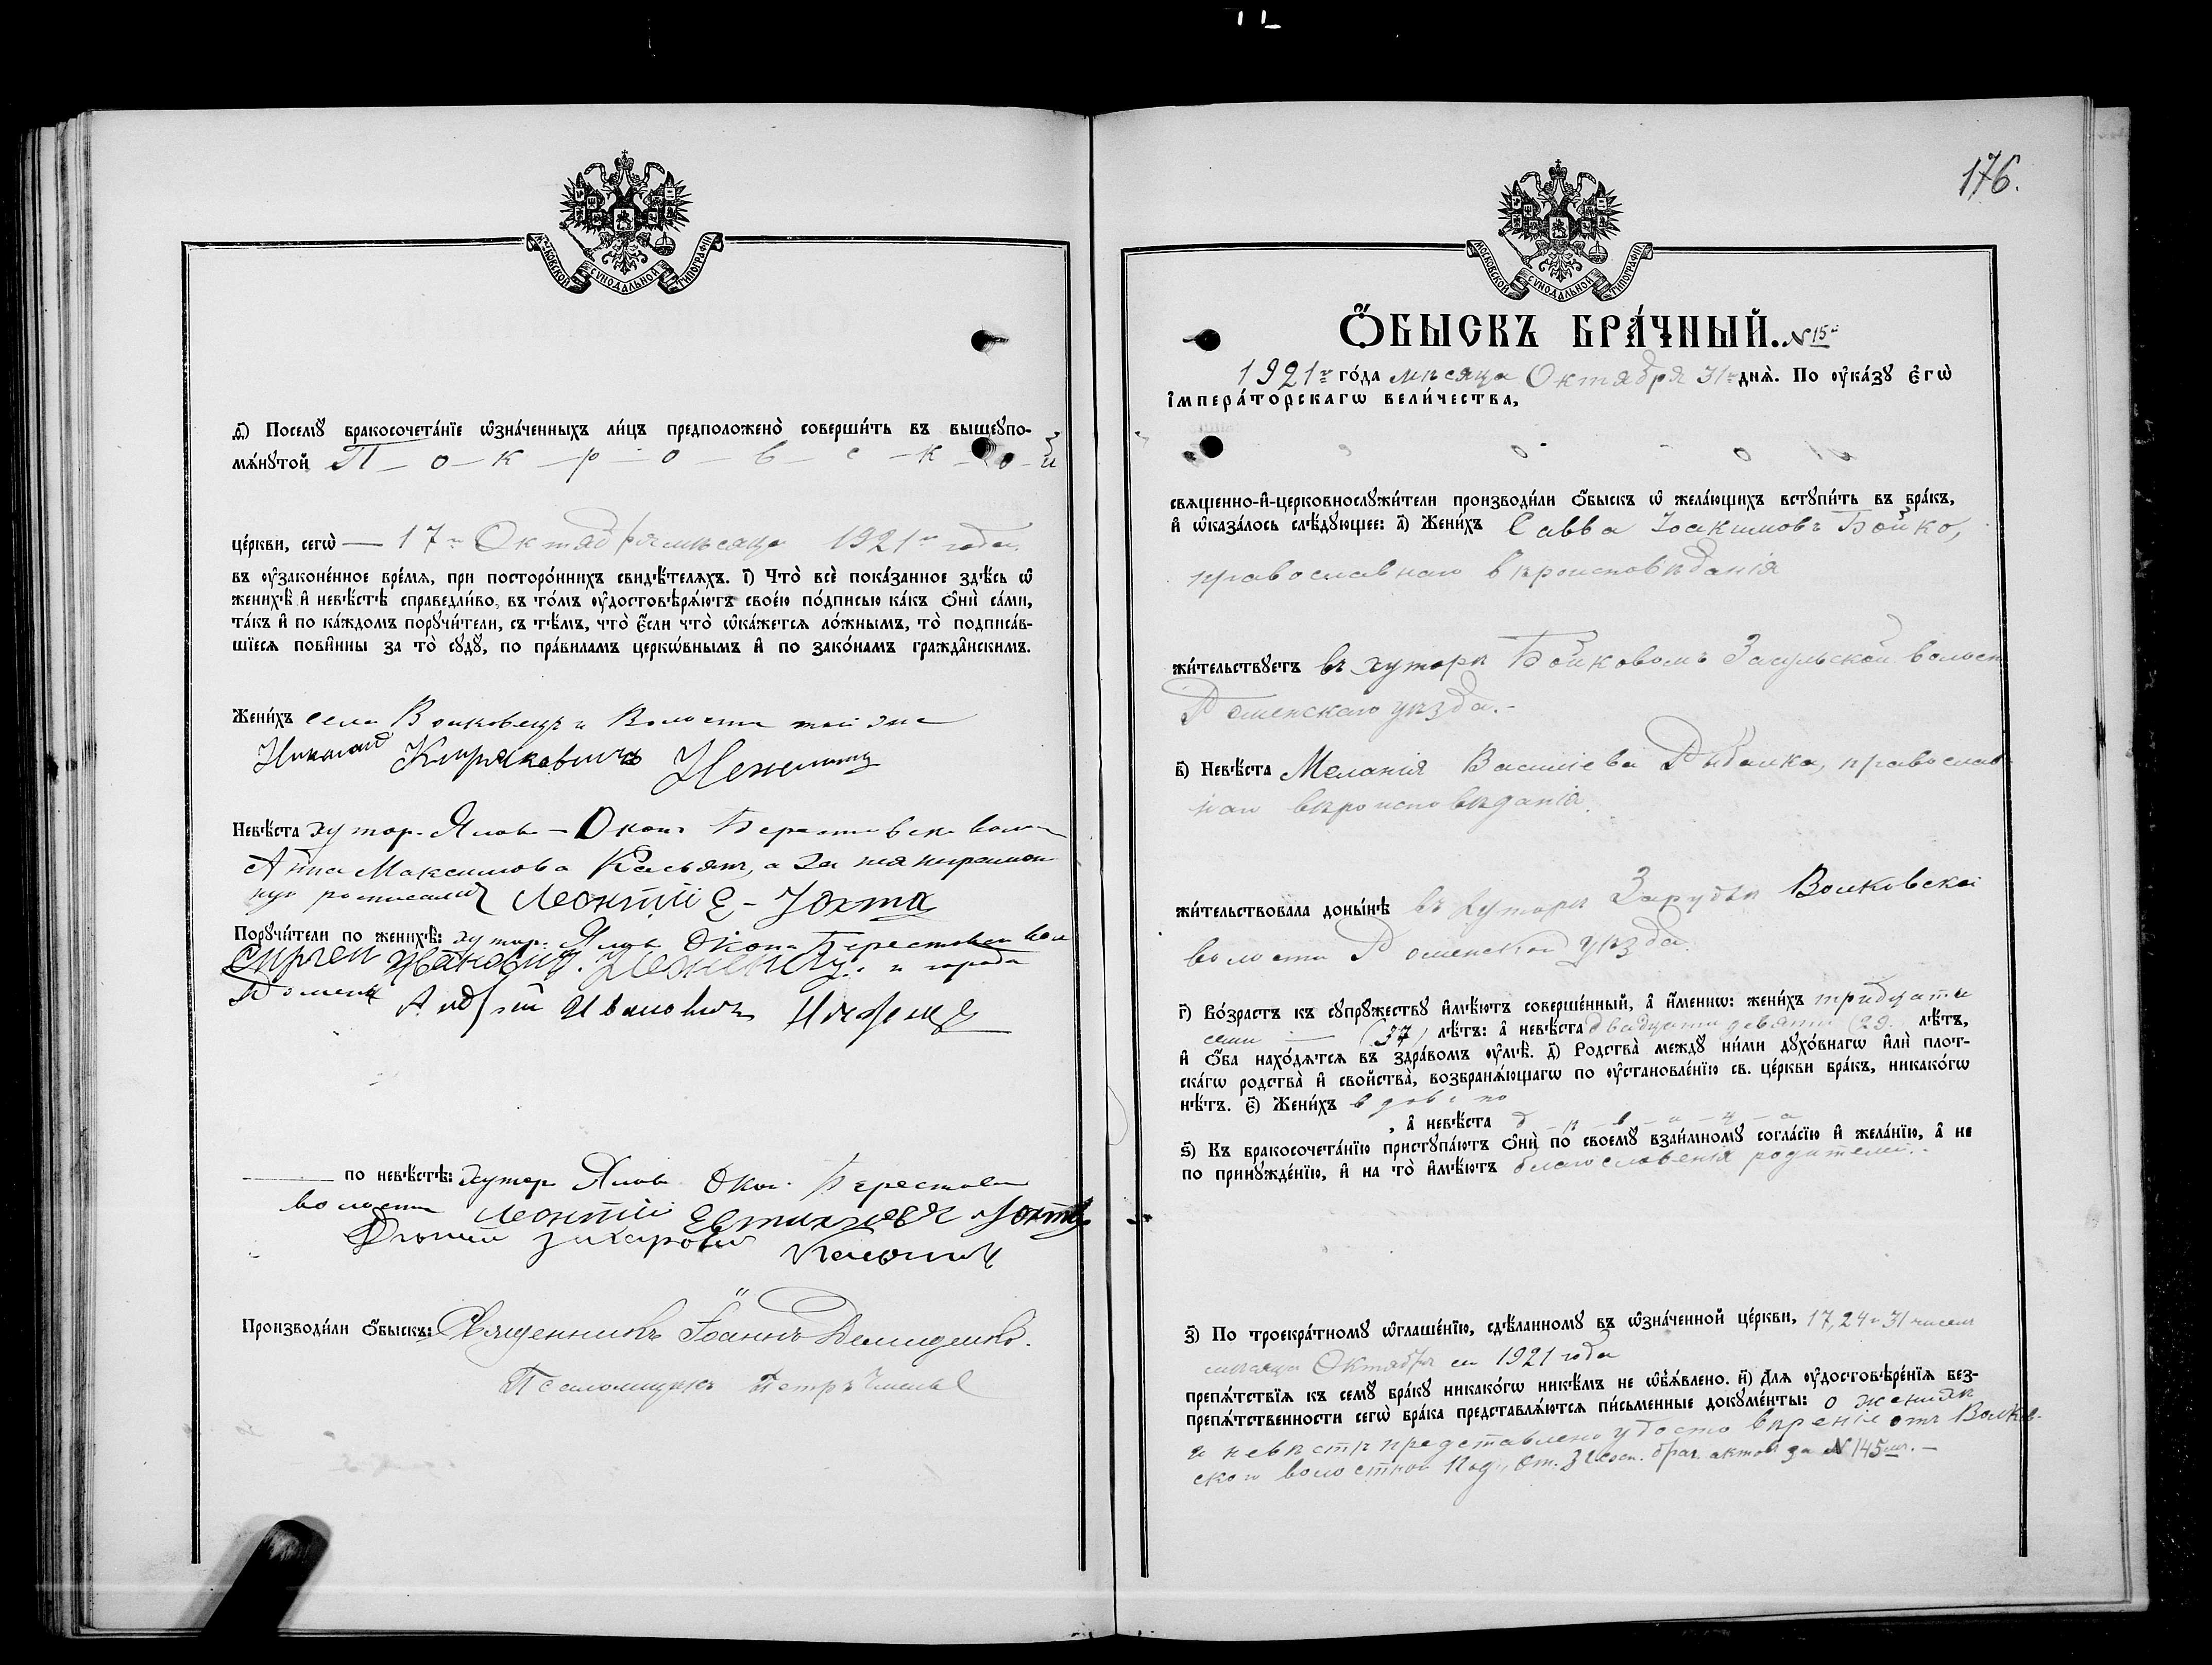 МОСКОВСКОЙ СѴНОДАЛЬНОЙ ТИПОГРАФІИ
ѳ҃) Посемꙋ̀ бракосочета́нїе ѡ҆зна́ченныхъ ли́цъ предположено̀ соверши́ть въ вышеꙋпо-
мѧ́нꙋтой П-о-к-р-о-в-с-к-о-й
це́ркви, сегѡ̀ — 17го Октября мѣсяца 1921го года
въ ᲂу҆законе́нное вре́мѧ, при посторо́ннихъ свидѣ́телѧхъ. і҃) Что̀ всѐ пока́занное здѣ́сь ѡ҆
женихѣ̀ и҆ невѣ́стѣ справедли́во, въ то́мъ ᲂу҆достовѣрѧ́ютъ свое́ю по́дписью ка́къ ѻ҆нѝ са́ми,
та́къ и҆ по ка́ждомъ порꙋчи́тели, съ тѣ́мъ, что̀ є҆́сли что̀ ѡ҆ка́жетсѧ ло́жнымъ, то̀ подписа́в-
шїесѧ пови́нны за то̀ сꙋдꙋ̀, по пра́виламъ церкѡ́внымъ и҆ по зако́намъ гражда̑нскимъ.
Жени́хъ села Волковецъ и Волости той же
Николай Кириковичъ
Невѣ́ста хутор. Ялов-Окоп Берестовск. волост
Анна Максимова Кальянъ, а за нея неграмот-
ную росписался Леонтій Е-Юхта
Порꙋчи́тели по женихѣ̀: хутор. Ялов Окопъ Берестовск вол
Сиргей Иванович и города
Ромен Андрей Ивановичъ
по невѣ́стѣ: хутор Ялов Окоп Берестов
волости Леонтій Евтихіевъ Юхта
Захаровъ
Производи́ли ѻ҆́быскъ: Священникъ Іоаннъ Демиденко.
Псаломщикъ Петръ
176.
МОСКОВСКОЙ СѴНОДАЛЬНОЙ ТИПОГРАФІИ
Ѻ҆́БЫСКЪ БРА́ЧНЫЙ. N 15й
1921го го́да мѣсяца Октября 31го днѧ̀. По ᲂу҆ка́зꙋ є҆гѡ̀
і҆мпера́торскагѡ вели́чества,
свѧще́нно-и҆-церковнослꙋжи́тели производи́ли ѻ҆́быскъ ѡ҆ жела́ющихъ встꙋпи́ть въ бра́къ,
и҆ ѡ҆каза́лось слѣ́дꙋющее: а҃) Жени́хъ Савва Іоакимовъ Бойко,
православнаго вѣроисповѣданія
жи́тельствꙋетъ въ хуторѣ Бойковомъ Засульской волост
Роменскаго уѣзда.-
в҃) Невѣ́ста Меланія Василіева Рыбалка, православ-
наго вѣроисповѣданія.
жи́тельствовала доны́нѣ въ хуторѣ Зарудьи Волковской
волости Роменскаго уѣзда.
г҃) Во́зрастъ къ сꙋпрꙋ́жествꙋ и҆мѣ́ютъ соверше́нный, а҆ и҆́меннѡ: жени́хъ тридцати
семи — (37) лѣ́тъ: а҆ невѣ́ста двадцати девяти (29 лѣ́тъ,
и҆ ѻ҆́ба нахо́дѧтсѧ въ здра́вомъ ᲂу҆мѣ̀. д҃) Родства̀ междꙋ ни́ми дꙋхо́внагѡ и҆лѝ плот-
ска́гѡ родства̀ и҆ сво́йства, возбранѧ́ющагѡ по ᲂу҆становле́нїю св. це́ркви бра́къ, никако́гѡ
нѣ́тъ. є҃) Жени́хъ вдовъ по
, а҆ невѣ́ста д-ѣ-в-и-ц-а
ѕ҃) Къ бракосочета́нїю пристꙋпа́ютъ ѻ҆нѝ по своемꙋ̀ взаи́мномꙋ согла́сїю и҆ жела́нїю, а҆ не
по принꙋжде́нїю, и҆ на то̀ и҆мѣ́ютъ благословенія родителей.
з҃) По троекра́тномꙋ ѡ҆глаше́нїю, сдѣ́ланномꙋ въ ѡ҆зна́ченной це́ркви, 17, 24 и 31 числ
мѣсяца Октября 1921 года
препѧ́тствїѧ къ семꙋ̀ бра́кꙋ никако́гѡ никѣ́мъ не ѡ҆б̾ѧ́влено. и҃) Длѧ̀ ᲂу҆достовѣре́нїѧ без-
препѧ́тственности сегѡ̀ бра́ка представлѧ́ютсѧ пи́сьменные докꙋме́нты: о женихѣ
и невѣстѣ представлено удостовѣреніе отъ Волков-
ской волостной Под. От. Записи. брач. актов за N 145м.-